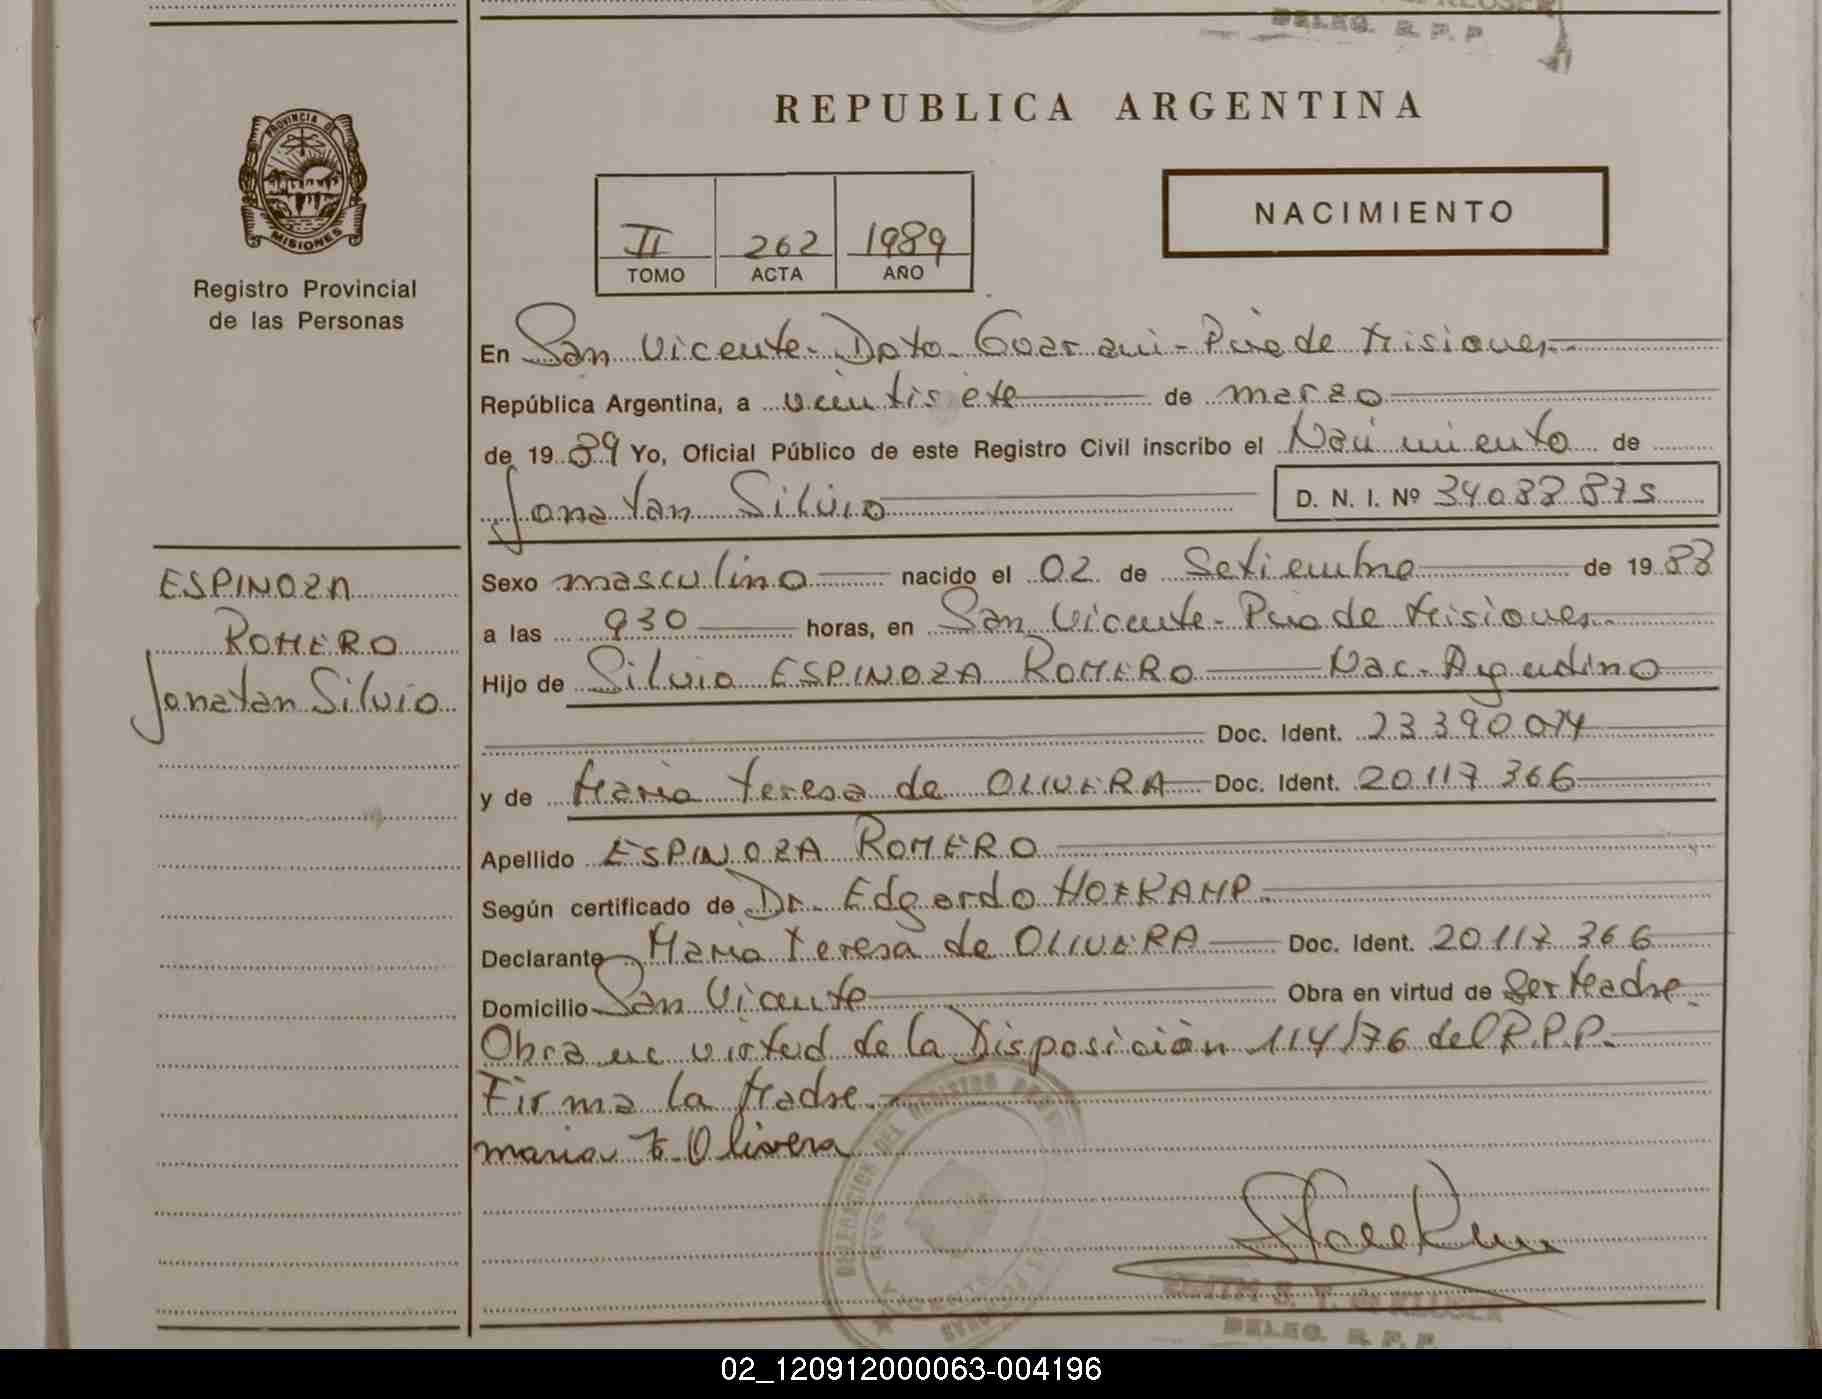 DELEG. R. P. P.
PROVINCIA DE
MISIONES
Registro Provincial
de las Personas
REPUBLICA ARGENTINA
II 262 1989
TOMO ACTA AÑO
NACIMIENTO
En San Vicente - Dpto. Guarani - Pcia de Misiones.-
República Argentina, a veintisiete de marzo
de 1989 Yo, Oficial Público de este Registro Civil inscribo el Nacimiento de
Jonatan Silvio D. N. I. Nº 34.088.875
ESPINOZA
ROMERO
Jonatan Silvio
Sexo masculino nacido el 02 de Setiembre de 1988
a las 930 horas, en San Vicente - Pcia de Misiones.-
Hijo de Silvio ESPINOZA ROMERO Nac. Argentino
Doc. Ident. 23.390.074
y de Maria Teresa de OLIVERA Doc. Ident. 20.117.366
Apellido ESPINOZA ROMERO
Según certificado de Dr. Edgardo HOFKAMP.
Declarante Maria Teresa de OLIVERA Doc. Ident. 20.117.366
Domicilio San Vicente Obra en virtud de Ser Madre.
Obra en virtud de la Disposición 114/76 del R.P.P.-
Firma la Madre.
maria t. Olivera
DELEG. R. P. P.
02_120912000063-004196